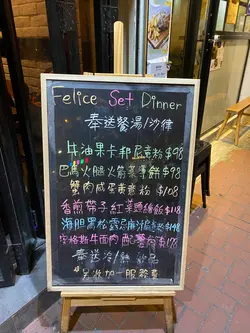 Felice Set Dinner
奉送餐湯/沙律
牛油果卡邦尼意粉 $98
巴馬火腿火箭菜薄餅 $98
蟹肉咸蛋黃意粉 $108
香煎帶子紅菜頭繪飯 $118
海胆黑松露忌廉汁扁意粉 $148
牛面肉配薯角 $198
奉送冷/熱飲品
另收加一服務費